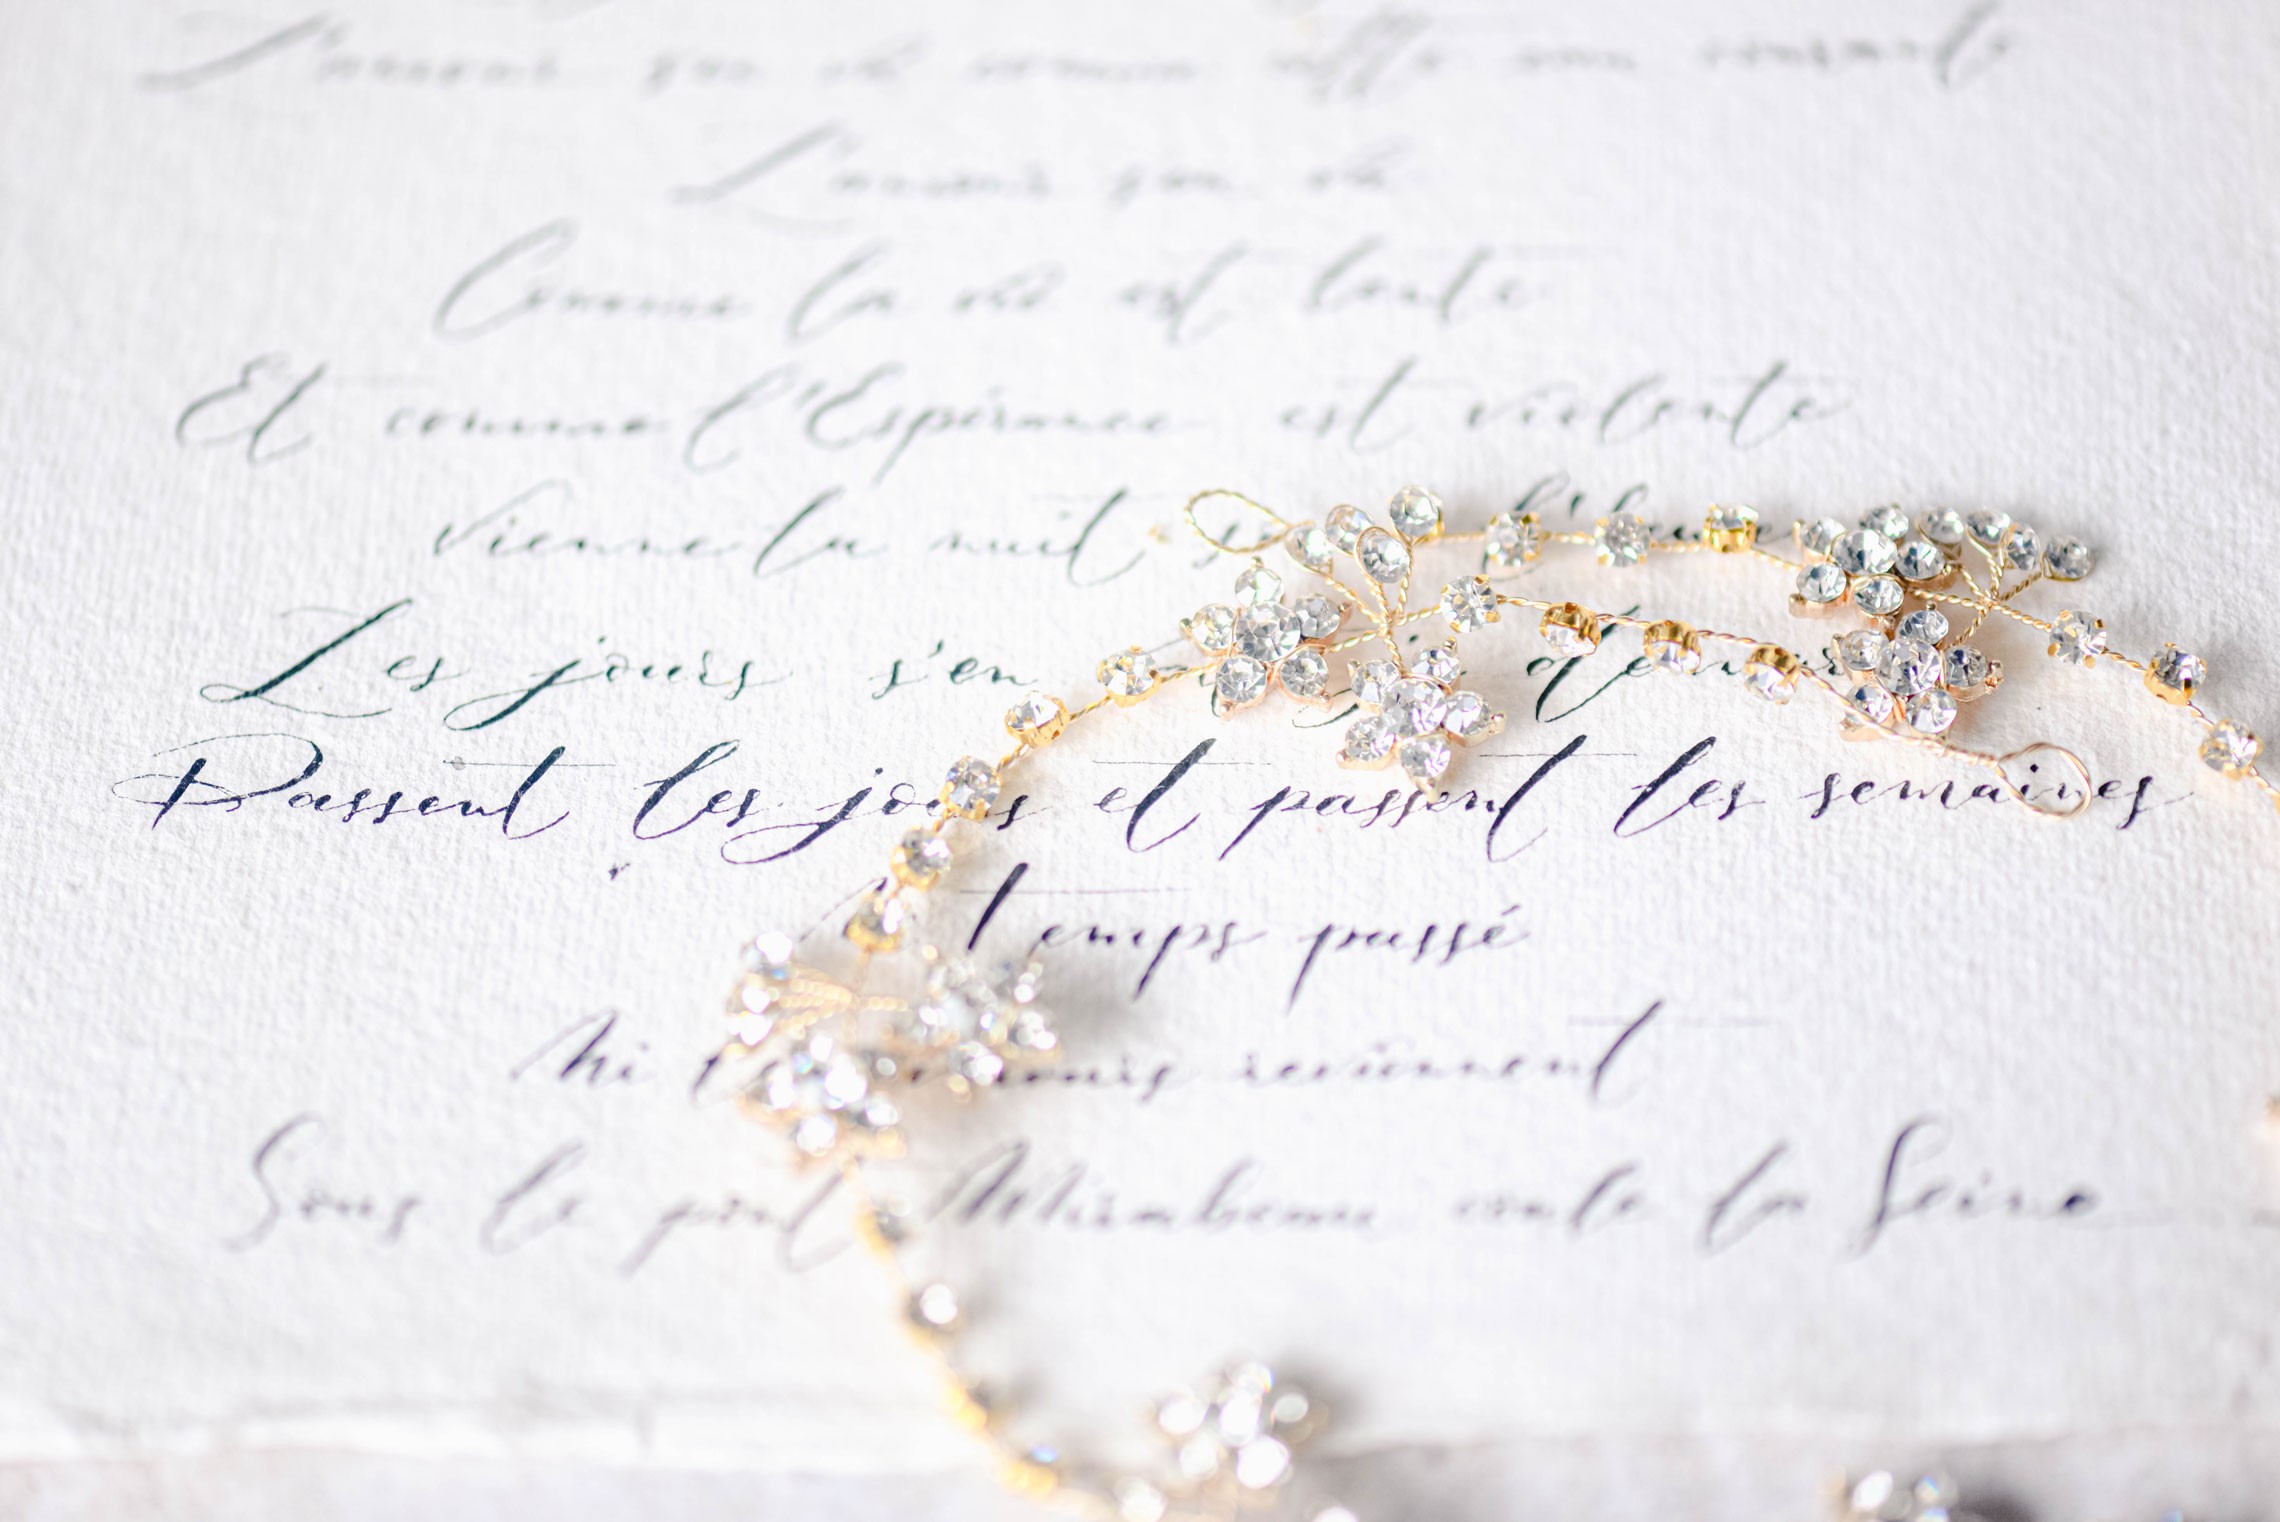 L'amour s'en va comme cette eau courante
L'amour s'en va
Comme la vie est lente
Et comme l'Espérance est violente
Vienne la nuit l'heure
Les jours s'en demeure
Passent les jours et passent les semaines
temps passé
Ni amours reviennent
Sous le pont Mirabeau coule la Seine